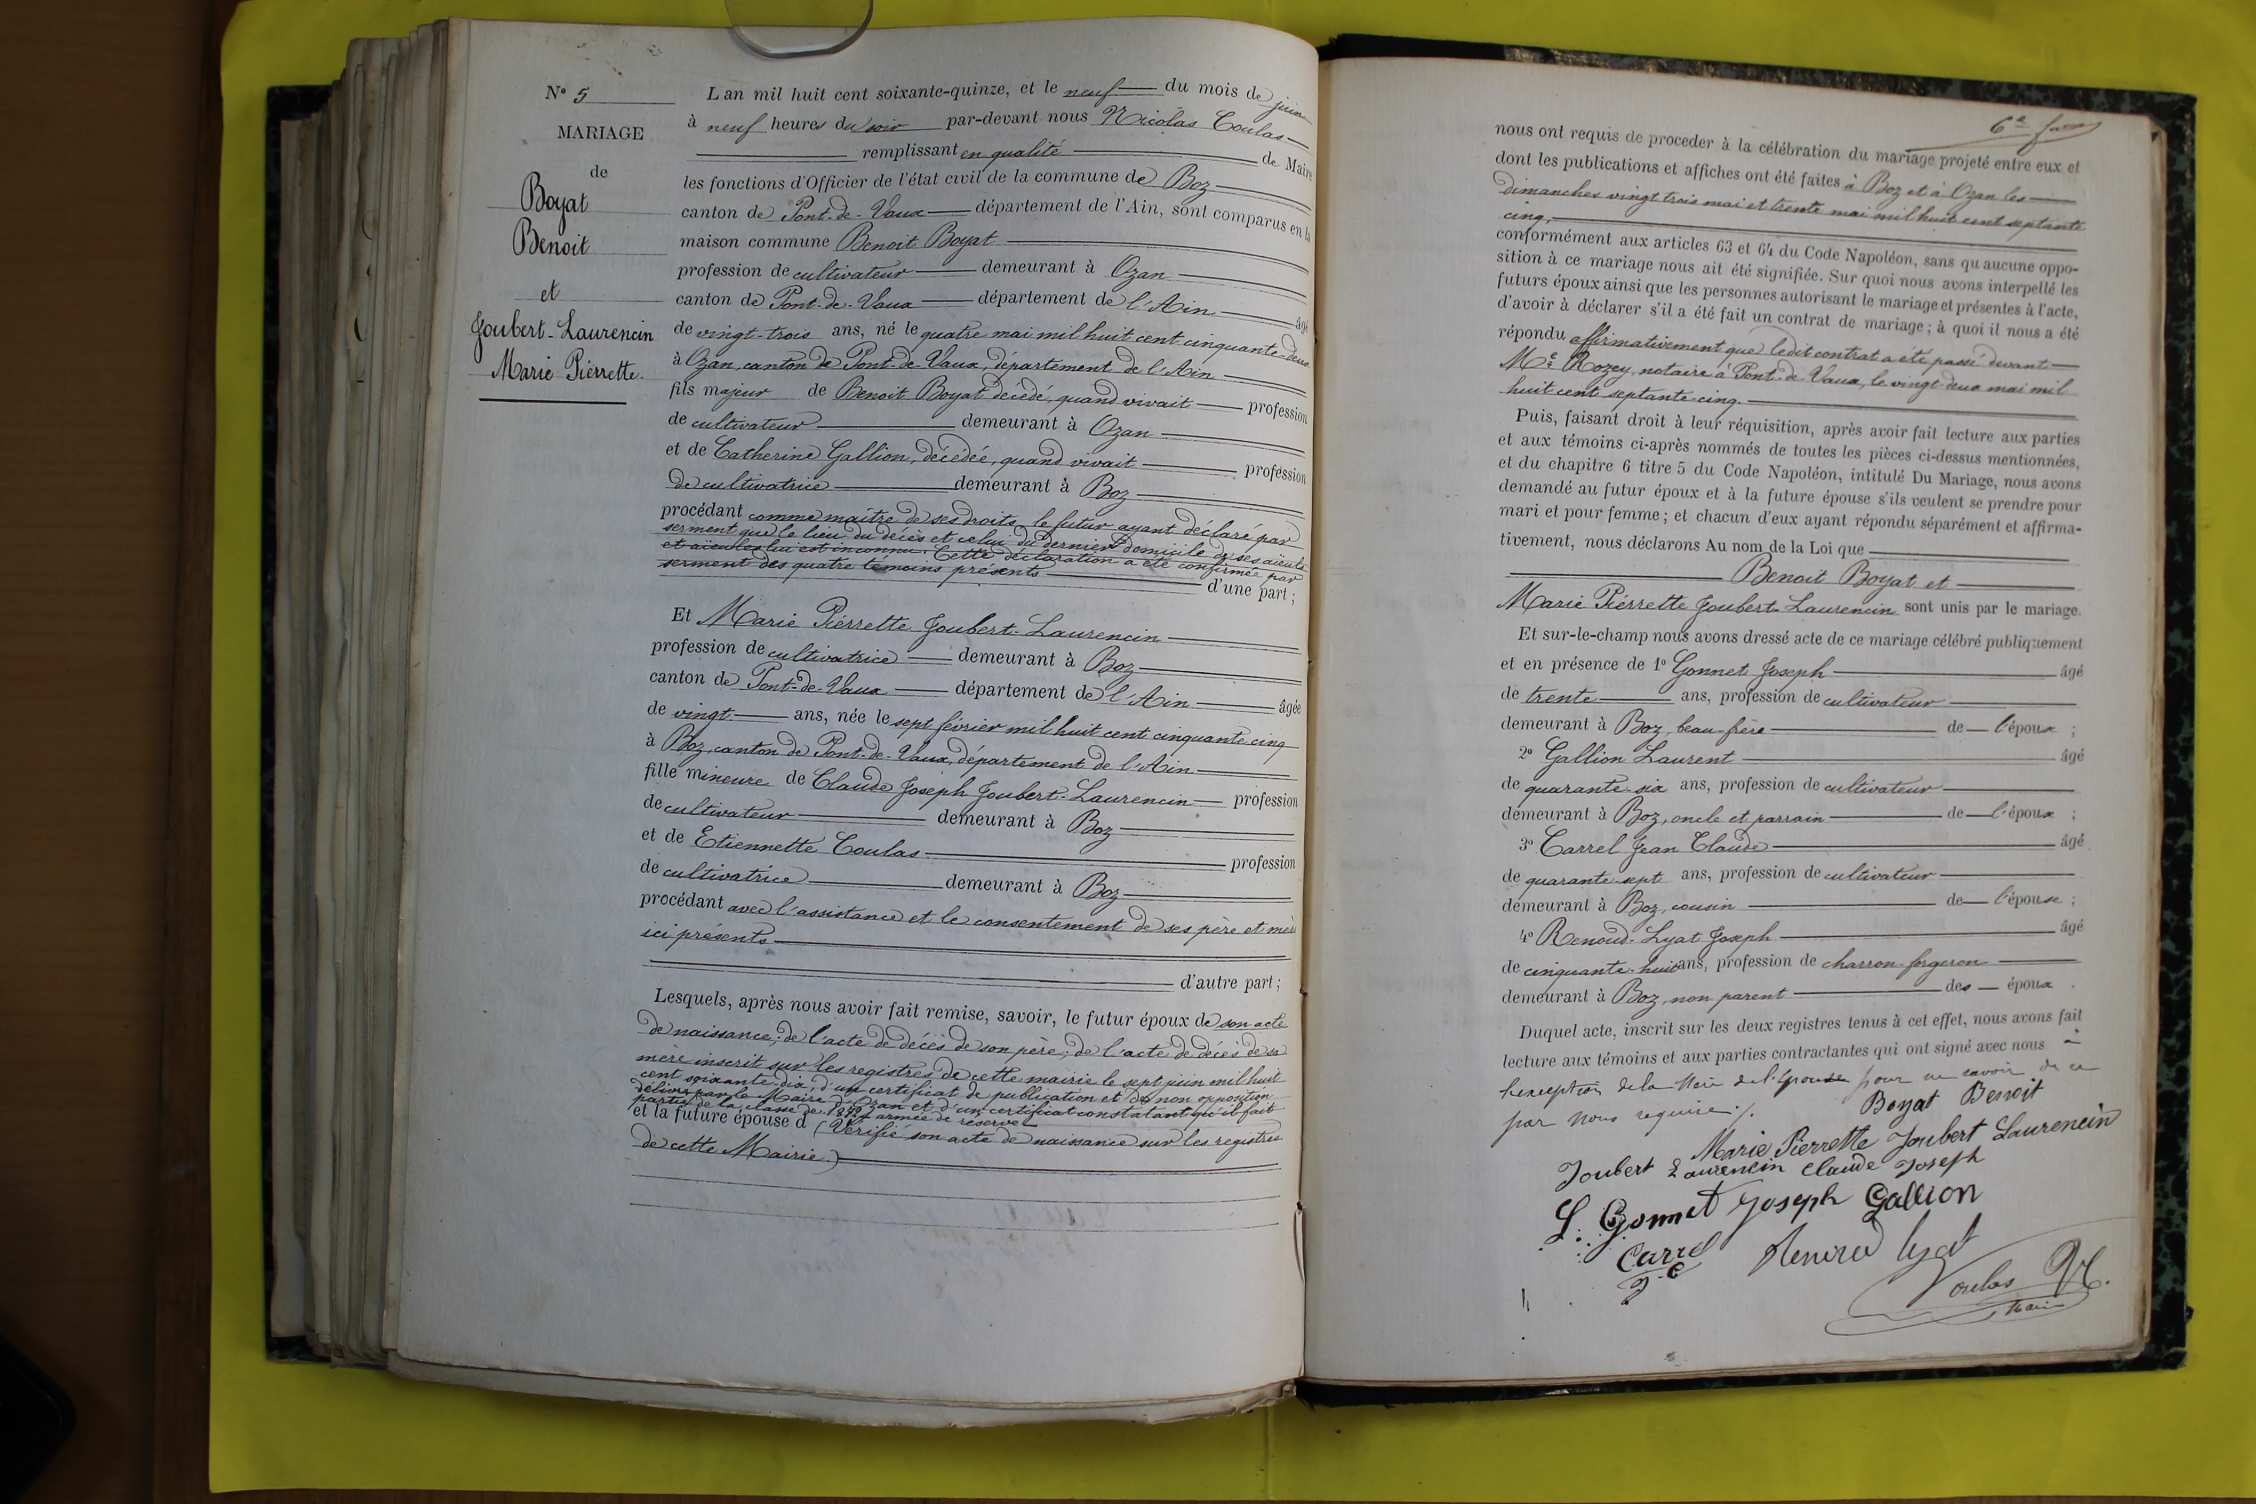 N° 5
MARIAGE
de
Boyat
Benoit
et
Joubert-Laurencin
Marie Pierrette.
L'an mil huit cent soixante-quinze, et le neuf du mois de juin
à neuf heures du soir par-devant nous Nicolas Coulas
remplissant en qualité de Maire
les fonctions d'Officier de l'état civil de la commune de Boz
canton de Pont-de-Vaux département de l'Ain, sont comparus en la
maison commune Benoit Boyat
profession de cultivateur demeurant à Ozan
canton de Pont-de-Vaux département de l'Ain âgé
de vingt-trois ans, né le quatre mai mil huit cent cinquante-deux
à Ozan, canton de Pont-de-Vaux, département de l'Ain
fils majeur de Benoit Boyat décédé, quand vivait profession
de cultivateur demeurant à Ozan
et de Catherine Gallion, décédée, quand vivait profession
de cultivatrice demeurant à Boz
procédant comme maître de ses droits, le futur ayant déclaré par
serment que le lieu du décès et celui du dernier domicile de ses aïeuls
et aïeules lui est inconnu. Cette déclaration a été confirmée par
serment des quatre témoins présents
d'une part ;
Et Marie Piérrette Joubert-Laurencin
profession de cultivatrice demeurant à Boz
canton de Pont-de-Vaux département de l'Ain âgée
de vingt ans, née le sept février mil huit cent cinquante cinq
à Boz, canton de Pont-de-Vaux, département de l'Ain
fille mineure de Claude Joseph Joubert-Laurencin profession
de cultivateur demeurant à Boz
et de Etiennette Coulas profession
de cultivatrice demeurant à Boz
procédant avec l'assistance et le consentement de ses père et mère
ici présents
d'autre part ;
Lesquels, après nous avoir fait remise, savoir, le futur époux de son acte
de naissance; de l'acte de décès de son père; de l'acte de décès de sa
mère inscrit sur les registres de cette mairie le sept juin mil huit
cent soixante-dix, d'un certificat de publication et de non opposition
délivré par le Maire d'Ozan et d'un certificat constatant qu'il fait
partie de la classe de 1872 armée de réserve
et la future épouse d (Vérifié son acte de naissance sur les registres
de cette Mairie)
6e f
nous ont requis de proceder à la célébration du mariage projeté entre eux et
dont les publications et affiches ont été faites à Boz et à Ozan les
dimanches vingt trois mai et trente mai mil huit cent septante
cinq,
conformément aux articles 63 et 64 du Code Napoléon, sans qu'aucune oppo-
sition à ce mariage nous ait été signifiée. Sur quoi nous avons interpellé les
futurs époux ainsi que les personnes autorisant le mariage et présentes à l'acte,
d'avoir à déclarer s'il a été fait un contrat de mariage ; à quoi il nous a été
répondu affirmativement que ledit contrat a été passé devant
Me Rozey, notaire à Pont-de-Vaux, le vingt deux mai mil
huit cent septante-cinq.
Puis, faisant droit à leur réquisition, après avoir fait lecture aux parties
et aux témoins ci-après nommés de toutes les pièces ci-dessus mentionnées,
et du chapitre 6 titre 5 du Code Napoléon, intitulé Du Mariage, nous avons
demandé au futur époux et à la future épouse s'ils veulent se prendre pour
mari et pour femme ; et chacun d'eux ayant répondu séparément et affirma-
tivement, nous déclarons Au nom de la Loi que
Benoit Boyat et
Marie Piérrette Joubert-Laurencin sont unis par le mariage.
Et sur-le-champ nous avons dressé acte de ce mariage célébré publiquement
et en présence de 1° Gonnet Joseph âgé
de trente ans, profession de cultivateur
demeurant à Boz, beau-frère de l'époux ;
2° Gallion Laurent âgé
de quarante-six ans, profession de cultivateur
demeurant à Boz, oncle et parrain de l'époux ;
3° Carrel Jean Claude âgé
de quarante-sept ans, profession de cultivateur
demeurant à Boz, cousin de l'épouse ;
4° Renoud-Lyat Joseph âgé
de cinquante-huit ans, profession de charron-forgeron
demeurant à Boz, non parent des époux .
Duquel acte, inscrit sur les deux registres tenus à cet effet, nous avons fait
lecture aux témoins et aux parties contractantes qui ont signé avec nous à
l'exception de la mère de l'épouse pour ne savoir de ce
par nous requise ./.
Boyat Benoit
Marie Pierrette Joubert Laurencin
Joubert Laurencin Claude Joseph
L. Gonnet Joseph Gallion
Carrel
J C
Renoud Lyat
Coulas N.
Maire